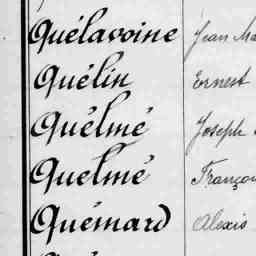 Quélavoine Jean Ma
Quélin Ernest
Quélmé Joseph
Quelmé Françoi
Quémard Alexis